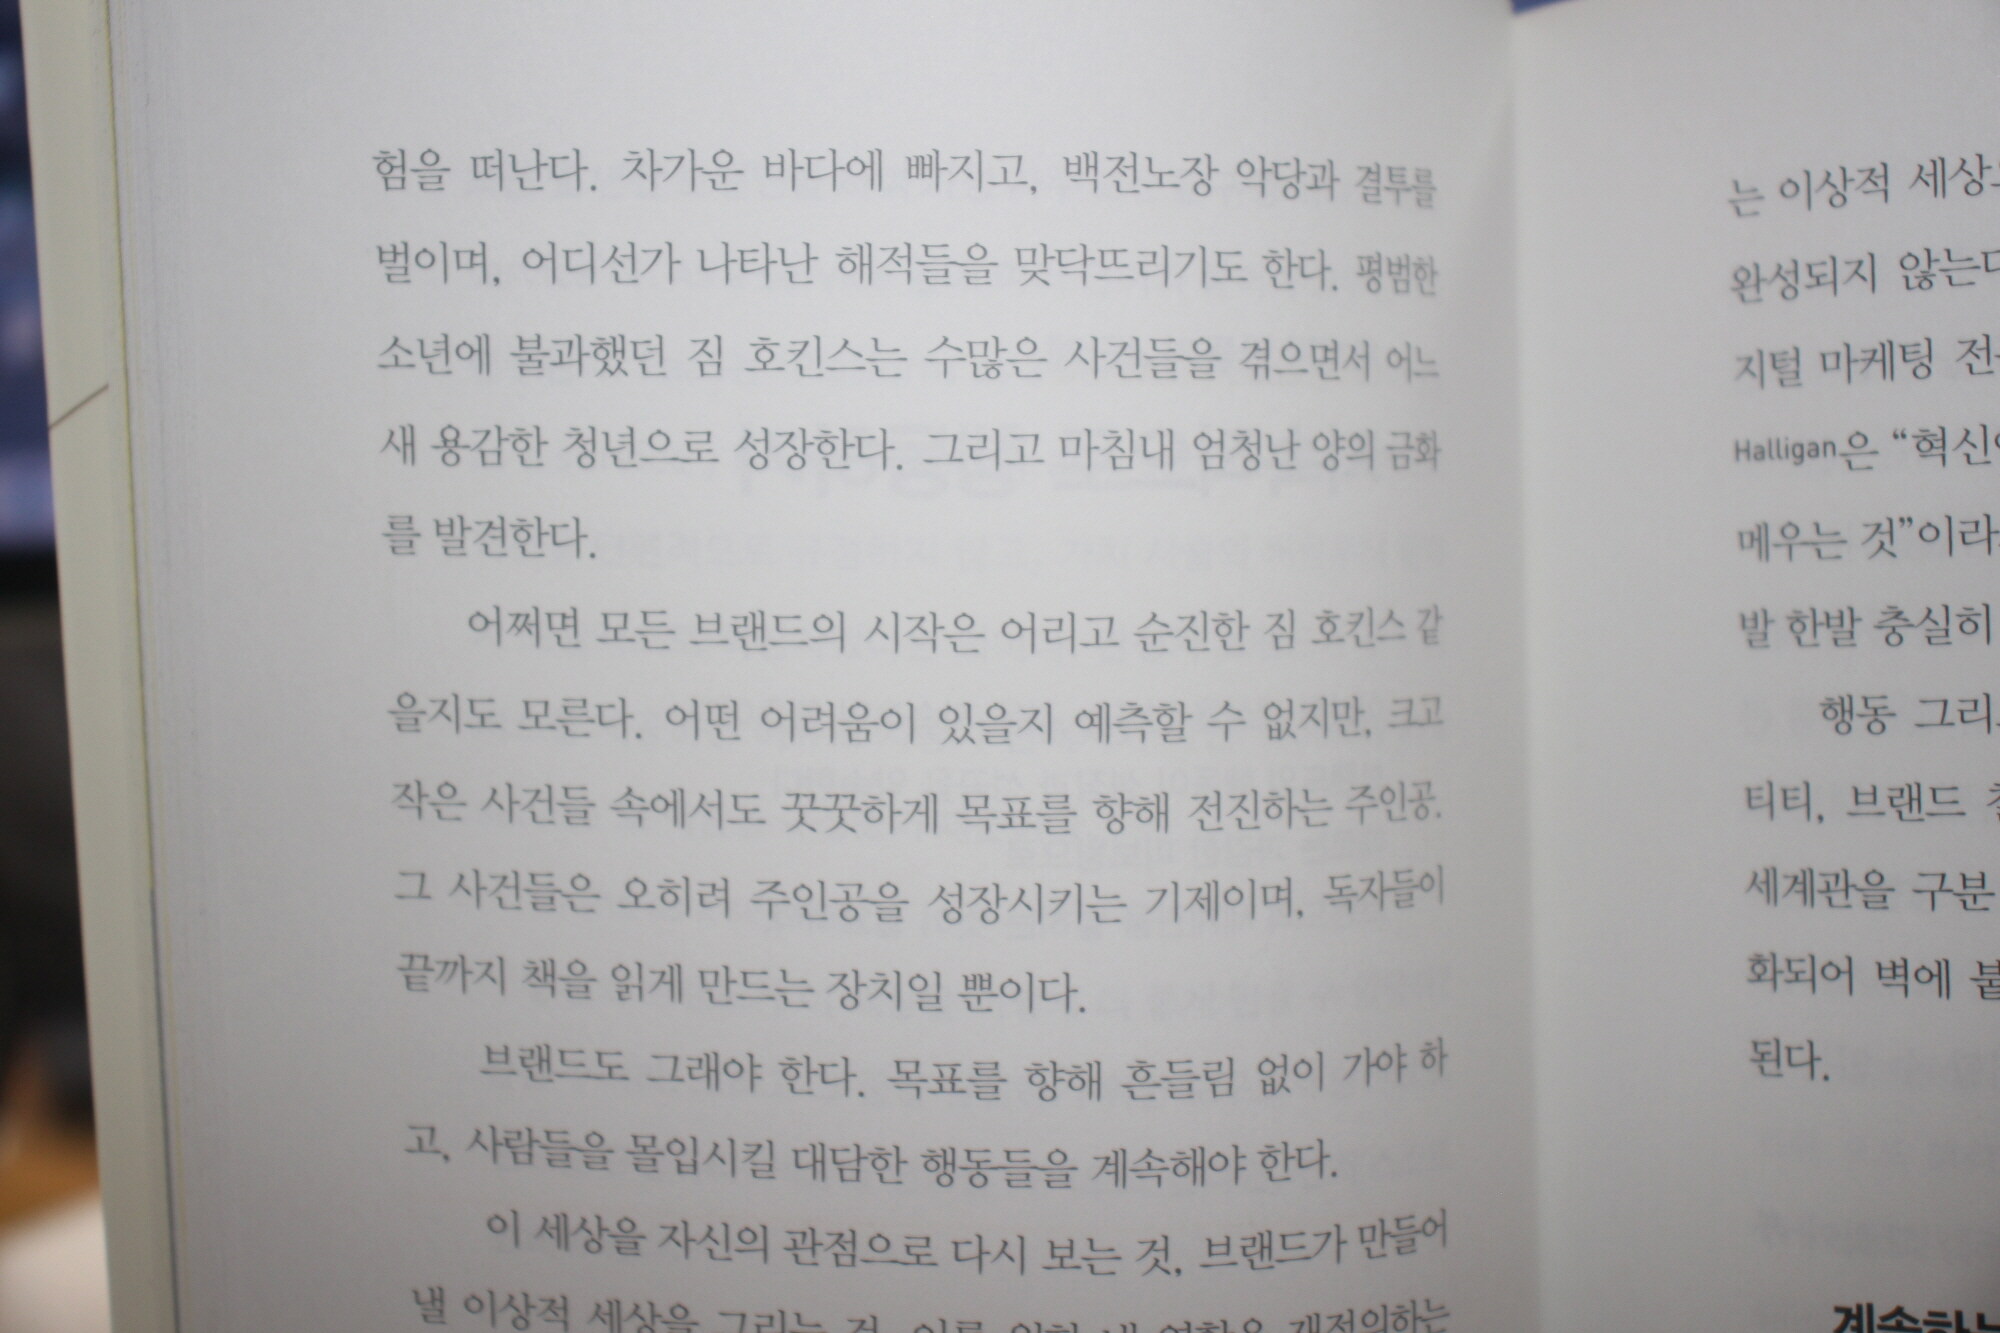 험을 떠난다. 차가운 바다에 빠지고, 백전노장 악당과 결투를
벌이며, 어디선가 나타난 해적들을 맞닥뜨리기도 한다. 평범한
소년에 불과했던 짐 호킨스는 수많은 사건들을 겪으면서 어느
새 용감한 청년으로 성장한다. 그리고 마침내 엄청난 양의 금화
를 발견한다.
어쩌면 모든 브랜드의 시작은 어리고 순진한 짐 호킨스 같
을지도 모른다. 어떤 어려움이 있을지 예측할 수 없지만, 크고
작은 사건들 속에서도 꿋꿋하게 목표를 향해 전진하는 주인공.
그 사건들은 오히려 주인공을 성장시키는 기제이며, 독자들이
끝까지 책을 읽게 만드는 장치일 뿐이다.
브랜드도 그래야 한다. 목표를 향해 흔들림 없이 가야 하
고, 사람들을 몰입시킬 대담한 행동들을 계속해야 한다.
이 세상을 자신의 관점으로 다시 보는 것, 브랜드가 만들어
낼 이상적 세상을 그리는 것, 이를 위해 내 역할을 재정의하는
는 이상적 세상
완성되지 않는다
지털 마케팅
Halligan은 “혁신
메우는 것”이라
발 한발 충실히
행동 그리
티티, 브랜드
세계관을 구분
화되어 벽에
된다.
계속하